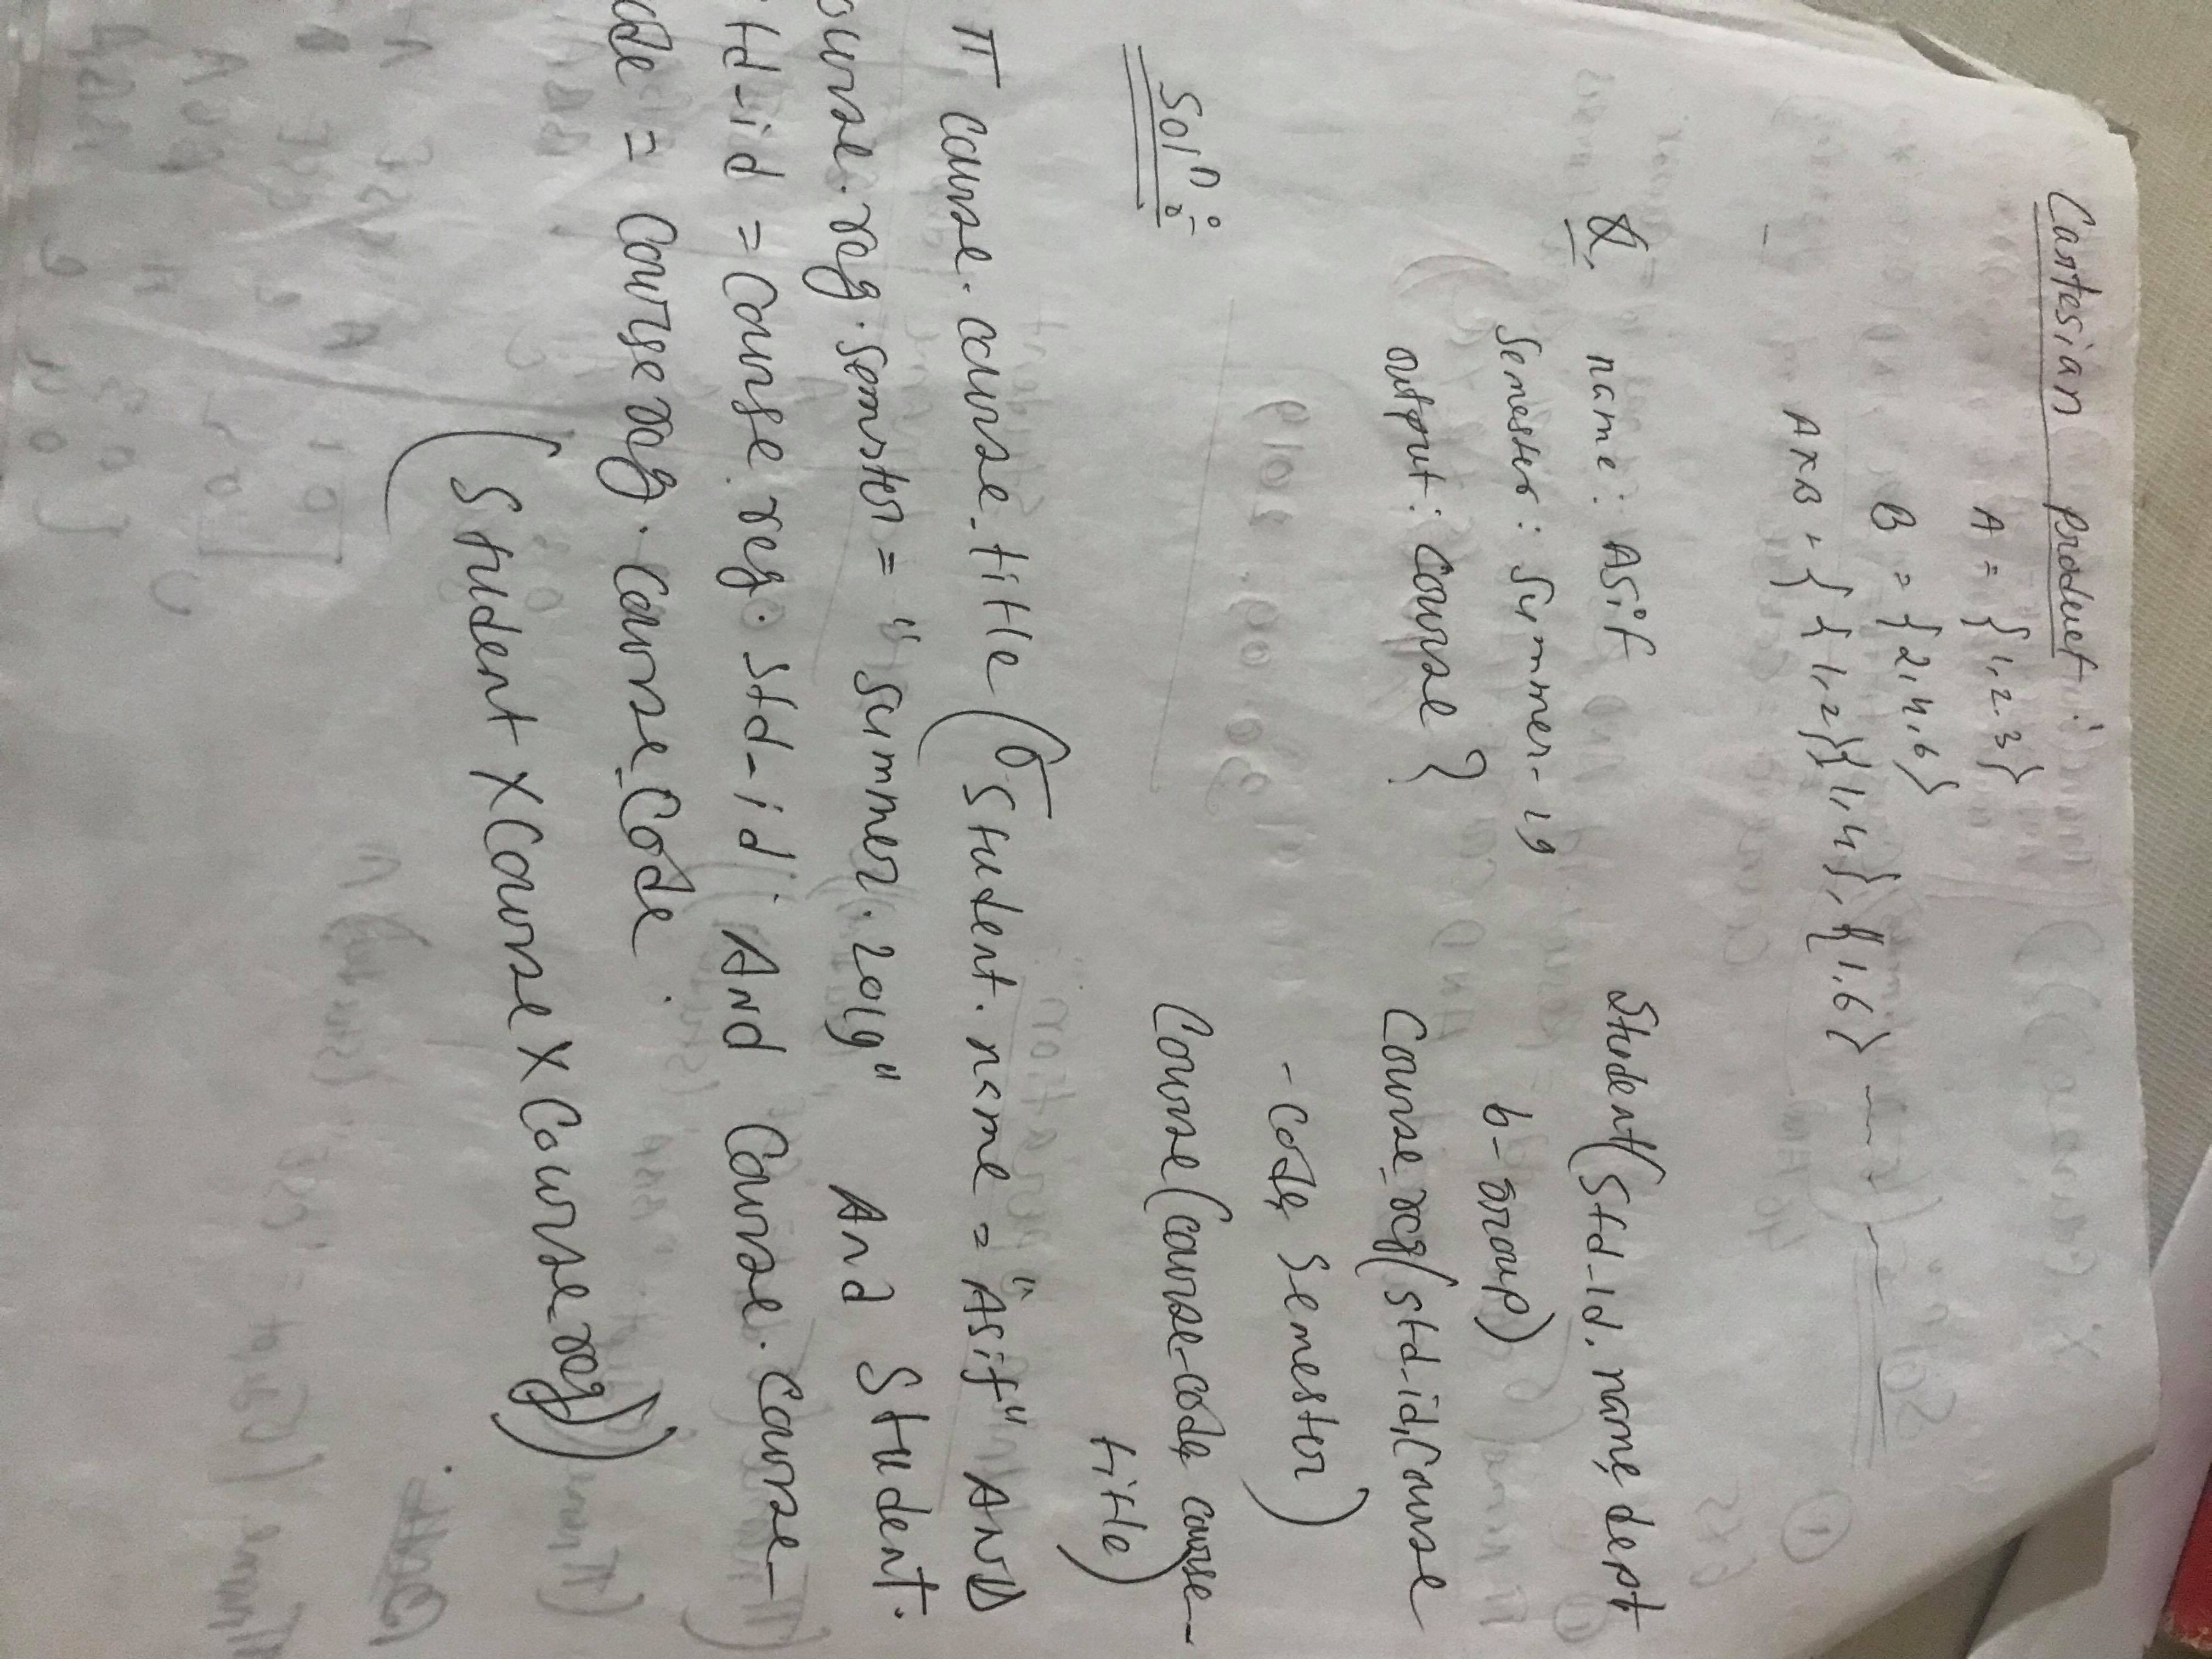 Cartesian product :
A = {1,2.3}
B = {2,4,6}
AXB = { {1,2}{1,4}, {1,6}
Q. name: ASif
Semester: Summer-19
output: Course ?
Student(Std-Id, name, dept
b-group)
Course_reg(std-id,Course
-code, Semester)
Course(course-code, course-
title)
Solⁿ :-
π course.course_title (σ Student.name = "Asif" AND
ourse.reg.semster = "summer.2019" And Student.
td-id = course reg. Std-id And Course.course-
ode = Coursereg.course_Code
(Student X Course X Course reg))